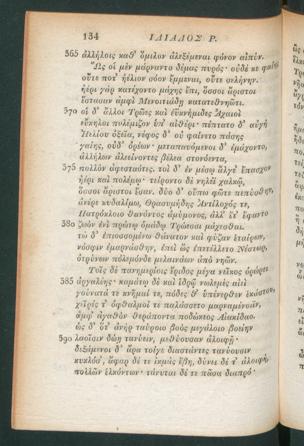 134 ΙΛΙΑΔΟΣ Ρ.
365 ἀλλήλοις καθ' ὅμιλον ἀλεξέμεναι φόνον αἰπύν.
Ὣς οἱ μὲν μάρναντο δέμας πυρός· οὐδέ κε φαίης
οὔτε ποτ' ἠέλιον σόον ἔμμεναι, οὔτε σελήνην.
ἠέρι γὰρ κατέχοντο μάχης ἔπι, ὅσσοι ἄριστοι
ἕστασαν ἀμφὶ Μενοιτιάδῃ κατατεθνηῶτι.
370 οἱ δ' ἄλλοι Τρῶες καὶ ἐϋκνήμιδες Ἀχαιοὶ
εὔκηλοι πολέμιζον ὑπ' αἰθέρι· πέπτατο δ' αὐγὴ
Ἠελίου ὀξεῖα, νέφος δ' οὐ φαίνετο πάσης
γαίης, οὐδ' ὀρέων· μεταπαυόμενοι δ' ἐμάχοντο,
ἀλλήλων ἀλεείνοντες βέλεα στονόεντα,
375 πολλὸν ἀφεσταότες. τοὶ δ' ἐν μέσῳ ἄλγε' ἔπασχον
ἠέρι καὶ πολέμῳ· τείροντο δὲ νηλέϊ χαλκῷ,
ὅσσοι ἄριστοι ἔσαν. δύο δ' οὔπω φῶτε πεπύσθην,
ἀνέρε κυδαλίμω, Θρασυμήδης Ἀντίλοχός τε,
Πατρόκλοιο θανόντος ἀμύμονος, ἀλλ' ἔτ' ἔφαντο
380 ζωὸν ἐνὶ πρώτῳ ὁμάδῳ Τρώεσσι μάχεσθαι.
τὼ δ' ἐπιοσσομένω θάνατον καὶ φύζαν ἑταίρων,
νόσφιν ἐμαρνάσθην, ἐπεὶ ὣς ἐπετέλλετο Νέστωρ,
ὀτρύνων πόλεμόνδε μελαινάων ἀπὸ νηῶν.
Τοῖς δὲ πανημερίοις ἔριδος μέγα νεῖκος ὀρώρει
385 ἀργαλέης· καμάτῳ δὲ καὶ ἱδρῷ νωλεμὲς αἰεὶ
γούνατά τε κνῆμαί τε, πόδες θ' ὑπένερθεν ἑκάστου,
χεῖρές τ' ὀφθαλμοί τε παλάσσετο μαρναμένοιϊν,
ἀμφ' ἀγαθὸν θεράποντα ποδώκεος Αἰακίδαο.
ὡς δ' ὅτ' ἀνὴρ ταύροιο βοὸς μεγάλοιο βοείην
390 λαοῖσιν δώῃ τανύειν, μεθύουσαν ἀλοιφῇ·
δεξάμενοι δ' ἄρα τοίγε διαστάντες τανύουσιν
κυκλόσ', ἄφαρ δέ τε ἰκμὰς ἔβη, δύνει δέ τ' ἀλοιφή,
πολλῶν ἑλκόντων· τάνυται δέ τε πᾶσα διαπρό·